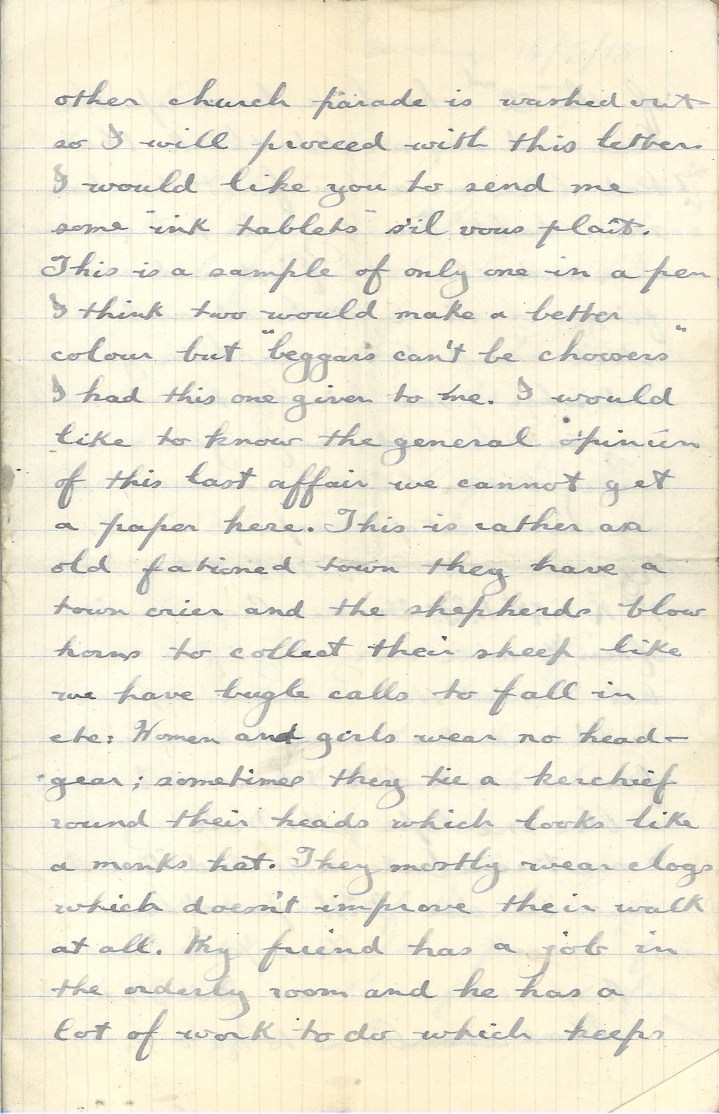 other church parade is washed out
so I will proceed with this letter.
I would like you to send me
some "ink tablets" s'il vous plait.
This is a sample of only one in a pen
I think two would make a better
colour but "beggars can't be choosers"
I had this one given to me. I would
like to know the general opinion
of this last affair we cannot get
a paper here. This is rather an
old fationed town they have a
town crier and the shepherds blow
horns to collect their sheep like
we have bugle calls to fall in
etc: Women and girls wear no head-
gear; sometimes they tie a kerchief
round their heads which looks like
a monks hat. They mostly wear clogs
which doesn't improve their walk
at all. My friend has a job in
the orderly room and he has a
lot of work to do which keeps